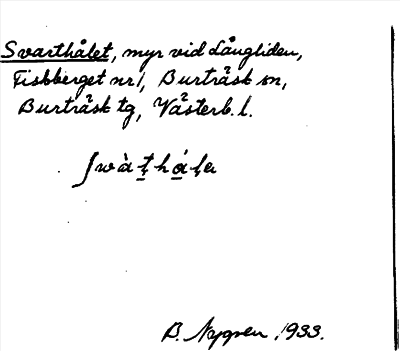 Svarthålet, myr vid Långliden,
Fiskberget nr 1, Burträsk sn,
Burträsk tg, Västerb. l.
ʃwàṭhạ́ḷa
B. Nygren, 1933.